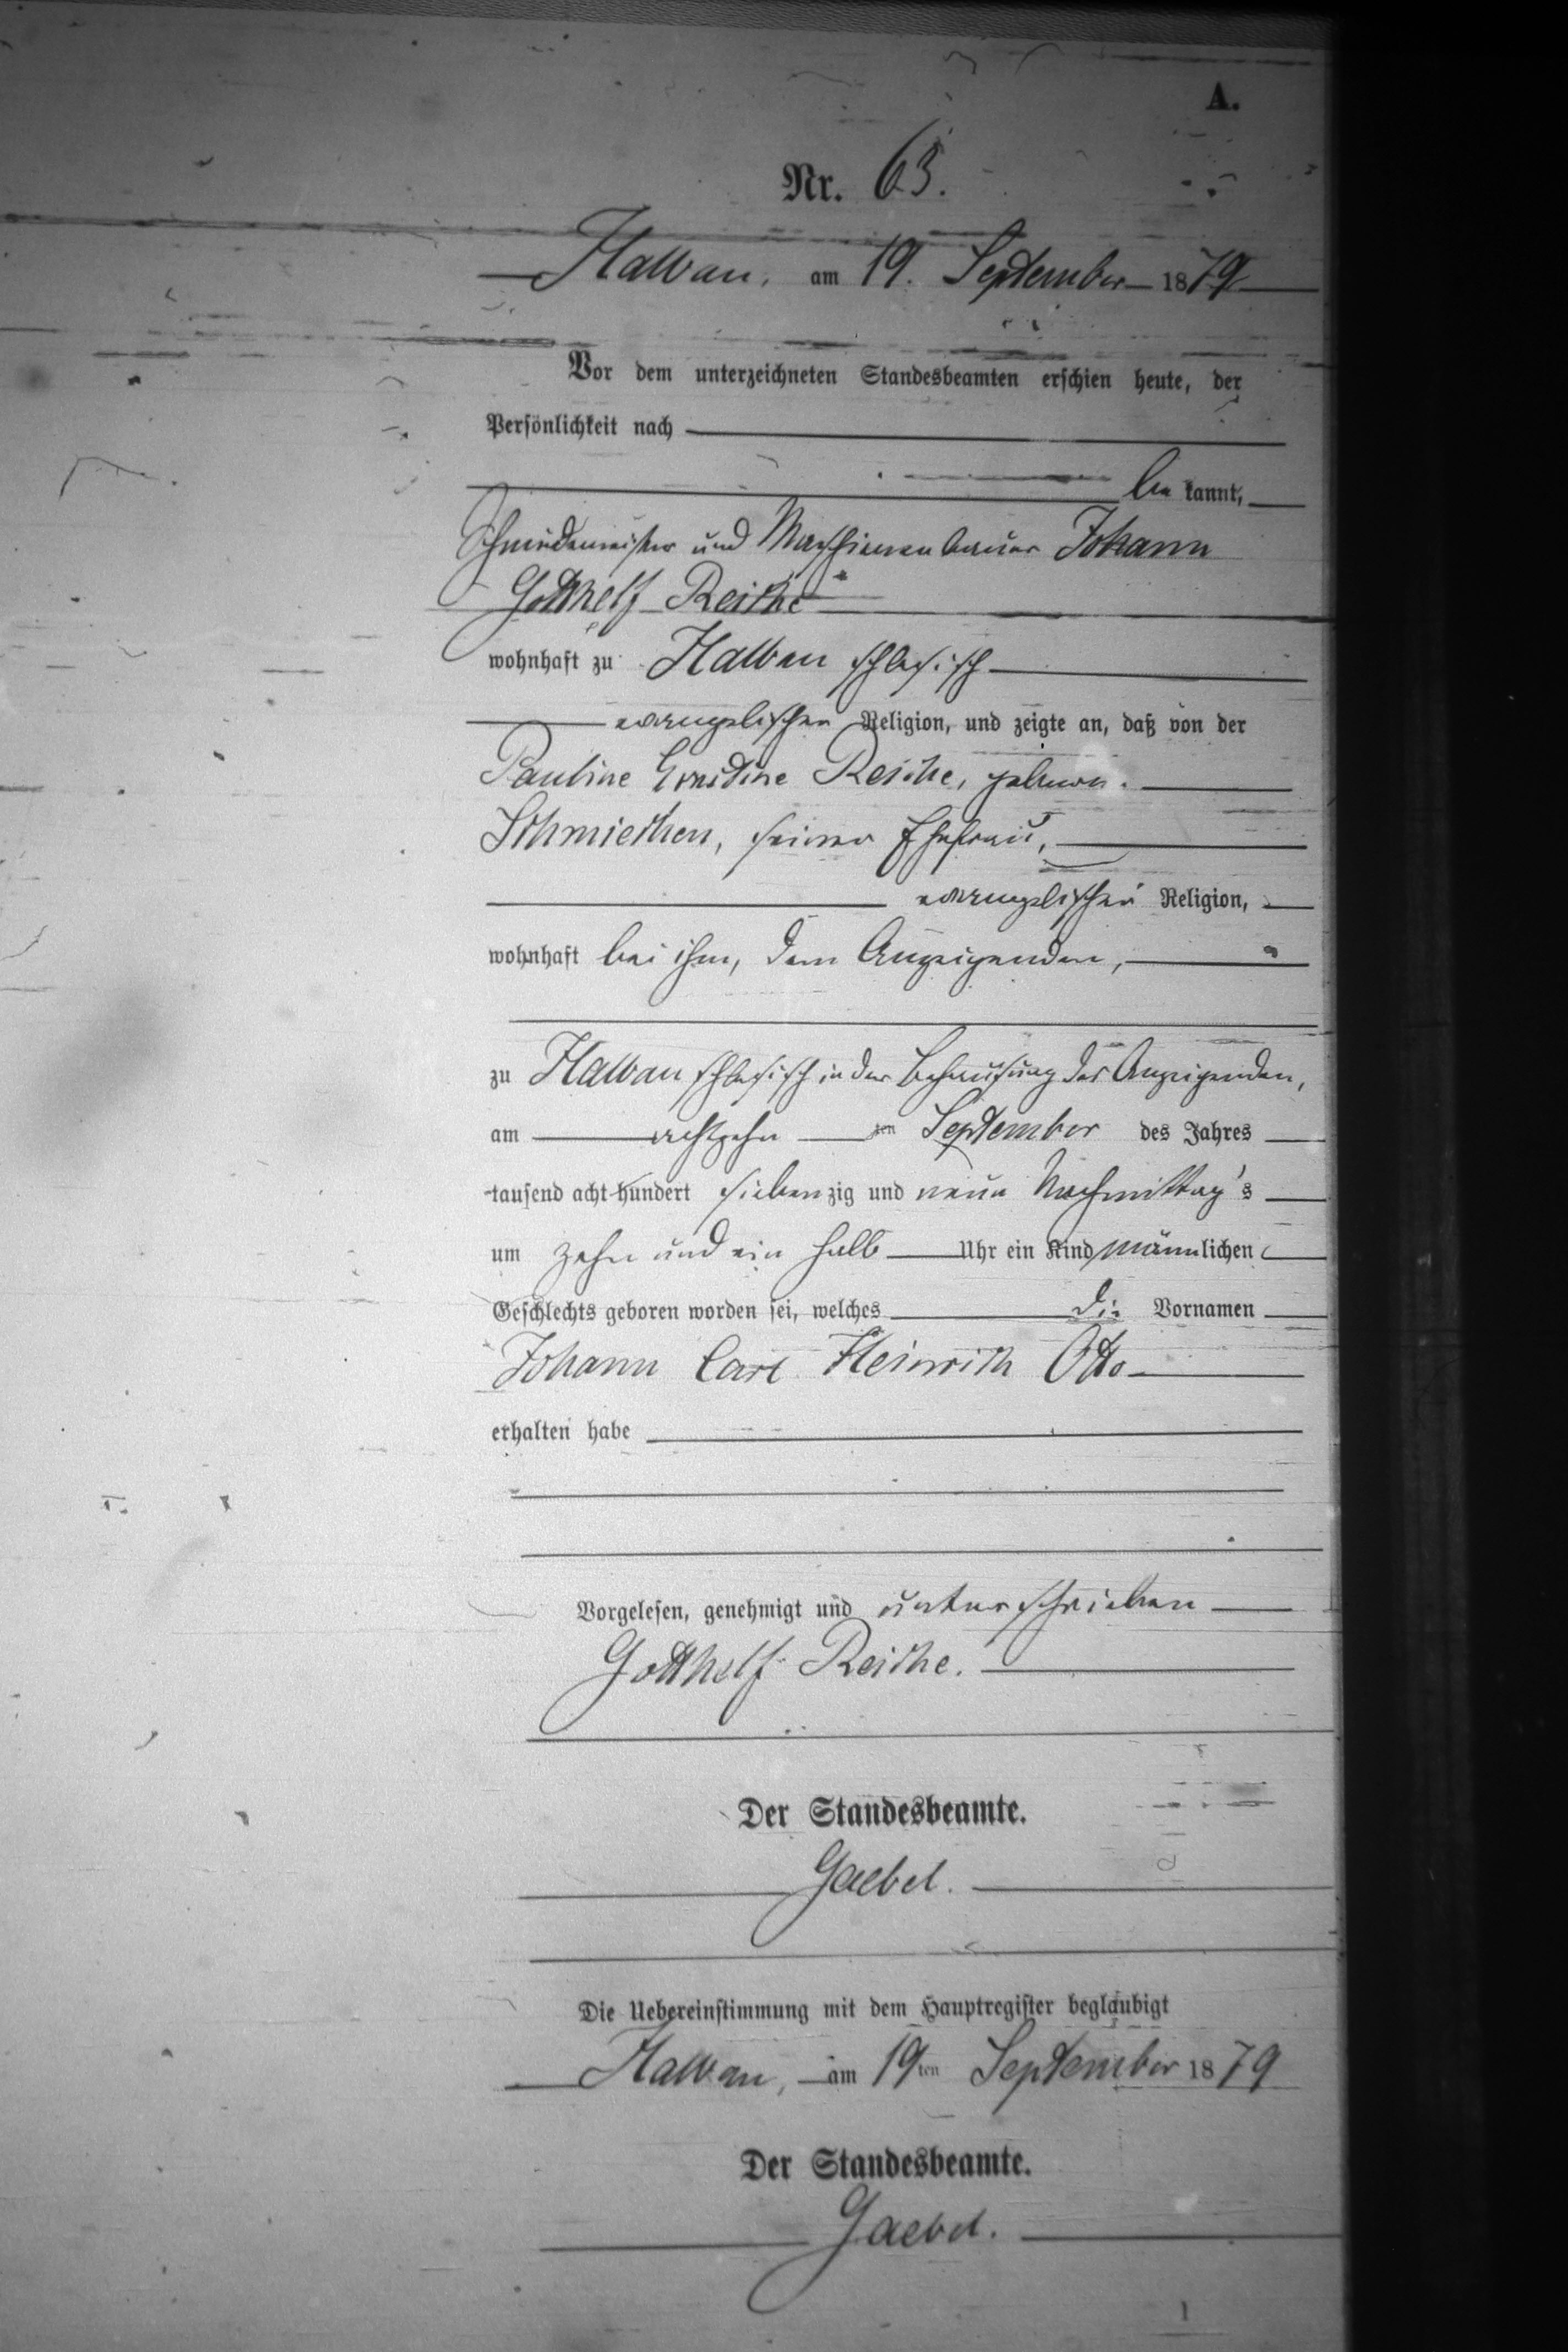 A.
Nr. 63.
Halbau, am 19. September 1879
Vor dem unterzeichneten Standesbeamten erschien heute, der
Persönlichkeit nach
be kannt,
Schmiedemeister und Maschinenbauer Johann
Gotthelf Reiche
wohnhaft zu Halbau schlesisch
evangelischer Religion, und zeigte an, daß von der
Pauline Ernestine Reiche, geborene
Schmiechen, seiner Ehefrau,
evangelischer Religion,
wohnhaft bei ihm, dem Anzeigenden,
zu Halbau schlesisch in der Behausung des Anzeigenden,
am achtzehn ten September des Jahres
tausend acht hundert siebenzig und neun Nachmittag's
um zehn und ein halb Uhr ein Kind männlichen
Geschlechts geboren worden sei, welches die Vornamen
Johann Carl Heinrich Otto
erhalten habe
Vorgelesen, genehmigt und unterschrieben
Gotthelf Reiche.
Der Standesbeamte.
Gaebel.
Die Uebereinstimmung mit dem Hauptregister beglaubigt
Halbau, am 19ten September 1879
Der Standesbeamte.
Gaebel.